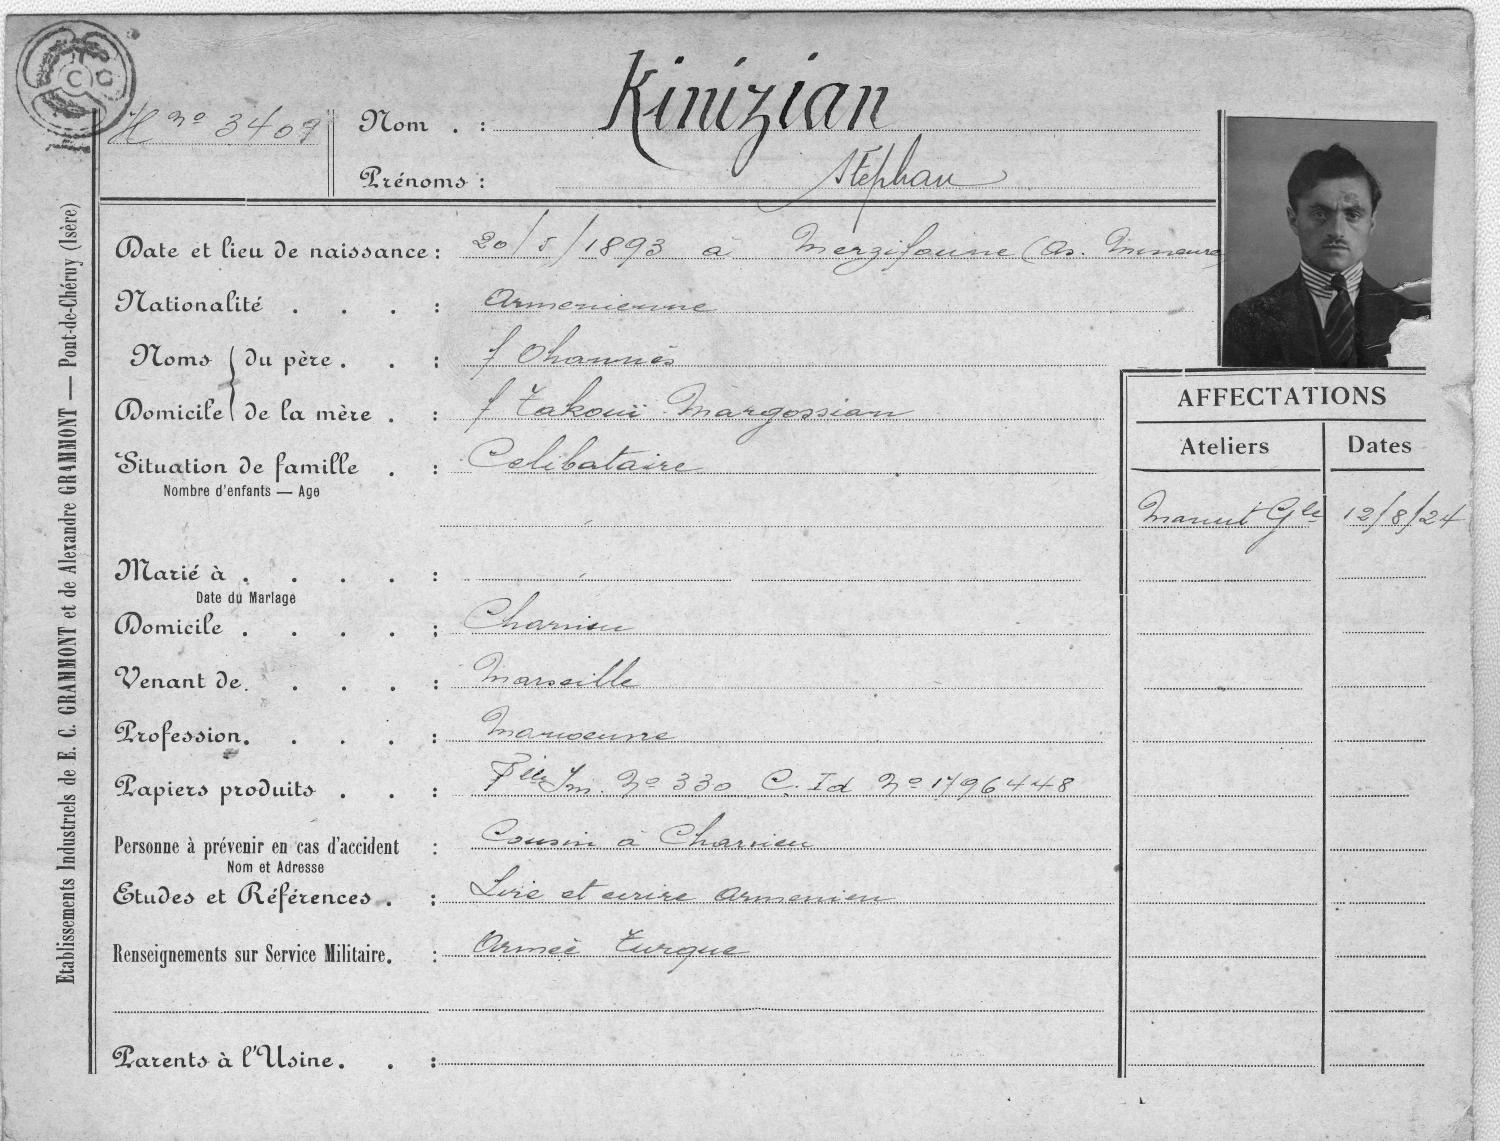 C G
H nº 3409
Nom . : Kinizian
Prénoms : Stéphan
Date et lieu de naissance : 20/5/1893 à Merzifoune (As. Mineure)
Nationalité . . . : Armenienne
Noms du père . . : f Ohannès
Domicile de la mère . : f Takouï Margossian
Situation de famille . : Celibataire
Nombre d'enfants — Age
Marié à . . . . :
Date du Mariage
Domicile . . . . : Charvieu
Venant de . . . : Marseille
Profession . . . . : Manoeuvre
Papiers produits . . : Flle Im. Nº 330 C. Id Nº 1796448
Personne à prévenir en cas d'accident : Cousin à Charvieu
Nom et Adresse
Etudes et Références . : Lire et ecrire armenien
Renseignements sur Service Militaire . : Armée Turque
Parents à l'Usine . . :
AFFECTATIONS
Ateliers Dates
Manut Gle 12/8/24
Etablissements Industriels de E. C. GRAMMONT et de Alexandre GRAMMONT — Pont-de-Chéruy (Isère)